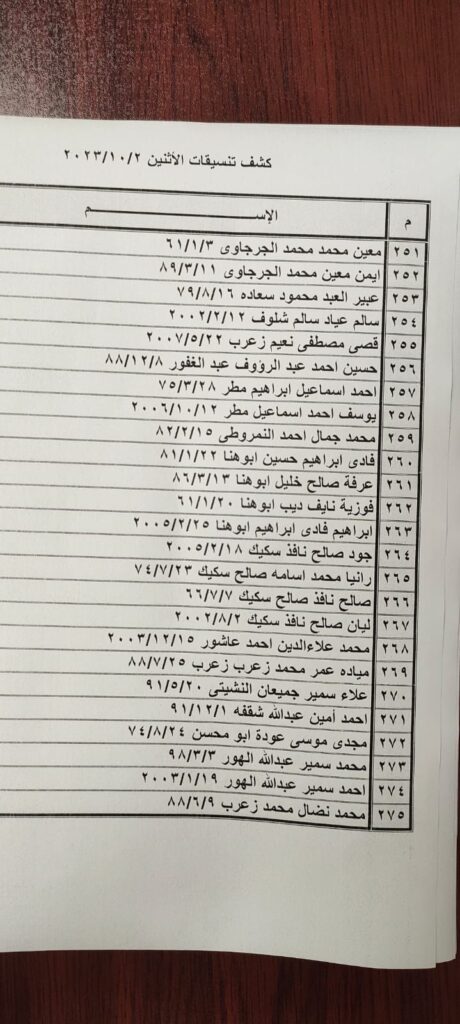 كشف تنسيقات الأثنين ٢٠٢٣/١٠/٢
م الإســـــــــم
٢٥١ معين محمد محمد الجرجاوى ٦١/١/٣
٢٥٢ ايمن معين محمد الجرجاوى ٨٩/٣/١١
٢٥٣ عبير العبد محمود سعاده ٧٩/٨/١٦
٢٥٤ سالم عياد سالم شلوف ٢٠٠٢/٢/١٢
٢٥٥ قصى مصطفى نعيم زعرب ٢٠٠٧/٥/٢٢
٢٥٦ حسين احمد عبد الرؤوف عبد الغفور ٨٨/١٢/٨
٢٥٧ احمد اسماعيل ابراهيم مطر ٧٥/٣/٢٨
٢٥٨ يوسف احمد اسماعيل مطر ٢٠٠٦/١٠/١٢
٢٥٩ محمد جمال احمد النمروطى ٨٢/٢/١٥
٢٦٠ فادى ابراهيم حسين ابوهنا ٨١/١/٢٢
٢٦١ عرفة صالح خليل ابوهنا ٨٦/٣/١٣
٢٦٢ فوزية نايف ديب ابوهنا ٦١/١/٢٠
٢٦٣ ابراهيم فادى ابراهيم ابوهنا ٢٠٠٥/٢/٢٥
٢٦٤ جود صالح نافذ سكيك ٢٠٠٥/٢/١٨
٢٦٥ رانيا محمد اسامه صالح سكيك ٧٤/٧/٢٣
٢٦٦ صالح نافذ صالح سكيك ٦٦/٧/٧
٢٦٧ ليان صالح نافذ سكيك ٢٠٠٢/٨/٢
٢٦٨ محمد علاءالدين احمد عاشور ٢٠٠٣/١٢/١٥
٢٦٩ مياده عمر محمد زعرب زعرب ٨٨/٧/٢٥
٢٧٠ علاء سمير جميعان النشيتى ٩١/٥/٢٠
٢٧١ احمد أمين عبدالله شقفه ٩١/١٢/١
٢٧٢ مجدى موسى عودة ابو محسن ٧٤/٨/٢٤
٢٧٣ محمد سمير عبدالله الهور ٩٨/٣/٣
٢٧٤ احمد سمير عبدالله الهور ٢٠٠٣/١/١٩
٢٧٥ محمد نضال محمد زعرب ٨٨/٦/٩